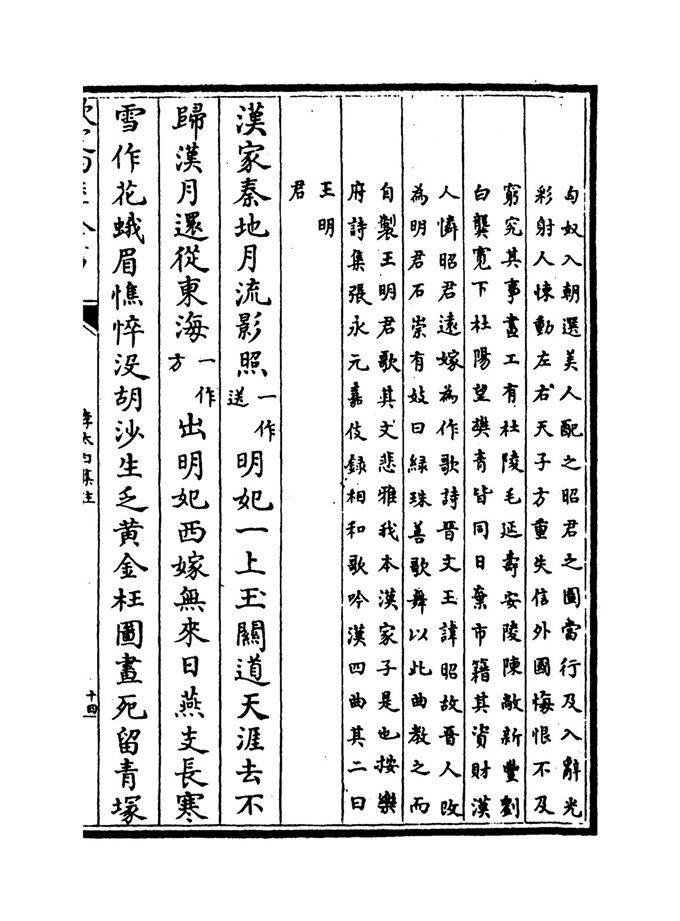 匈奴入朝選美人配之昭君之圖當行及入辭光
彩射人悚動左右天子方重失信外國悔恨不及
窮究其事畫工有杜陵毛延壽安陵陳敞新豐劉
白龔寛下杜陽望樊青皆同日棄市籍其資財漢
人憐昭君遠嫁為作歌詩晉文王諱昭故晉人改
為明君石崇有妓曰緑珠善歌舞以此曲教之而
自製王明君歌其文悲雅我本漢家子是也按樂
府詩集張永元嘉伎録相和歌吟漢四曲其二曰
王明
君
漢家秦地月流影照一作送明妃一上玉關道天涯去不
歸漢月還從東海一作方出明妃西嫁無來日燕支長寒
雪作花蛾眉憔悴没胡沙生乏黄金枉圖畫死留青塚
李太白集注
十四